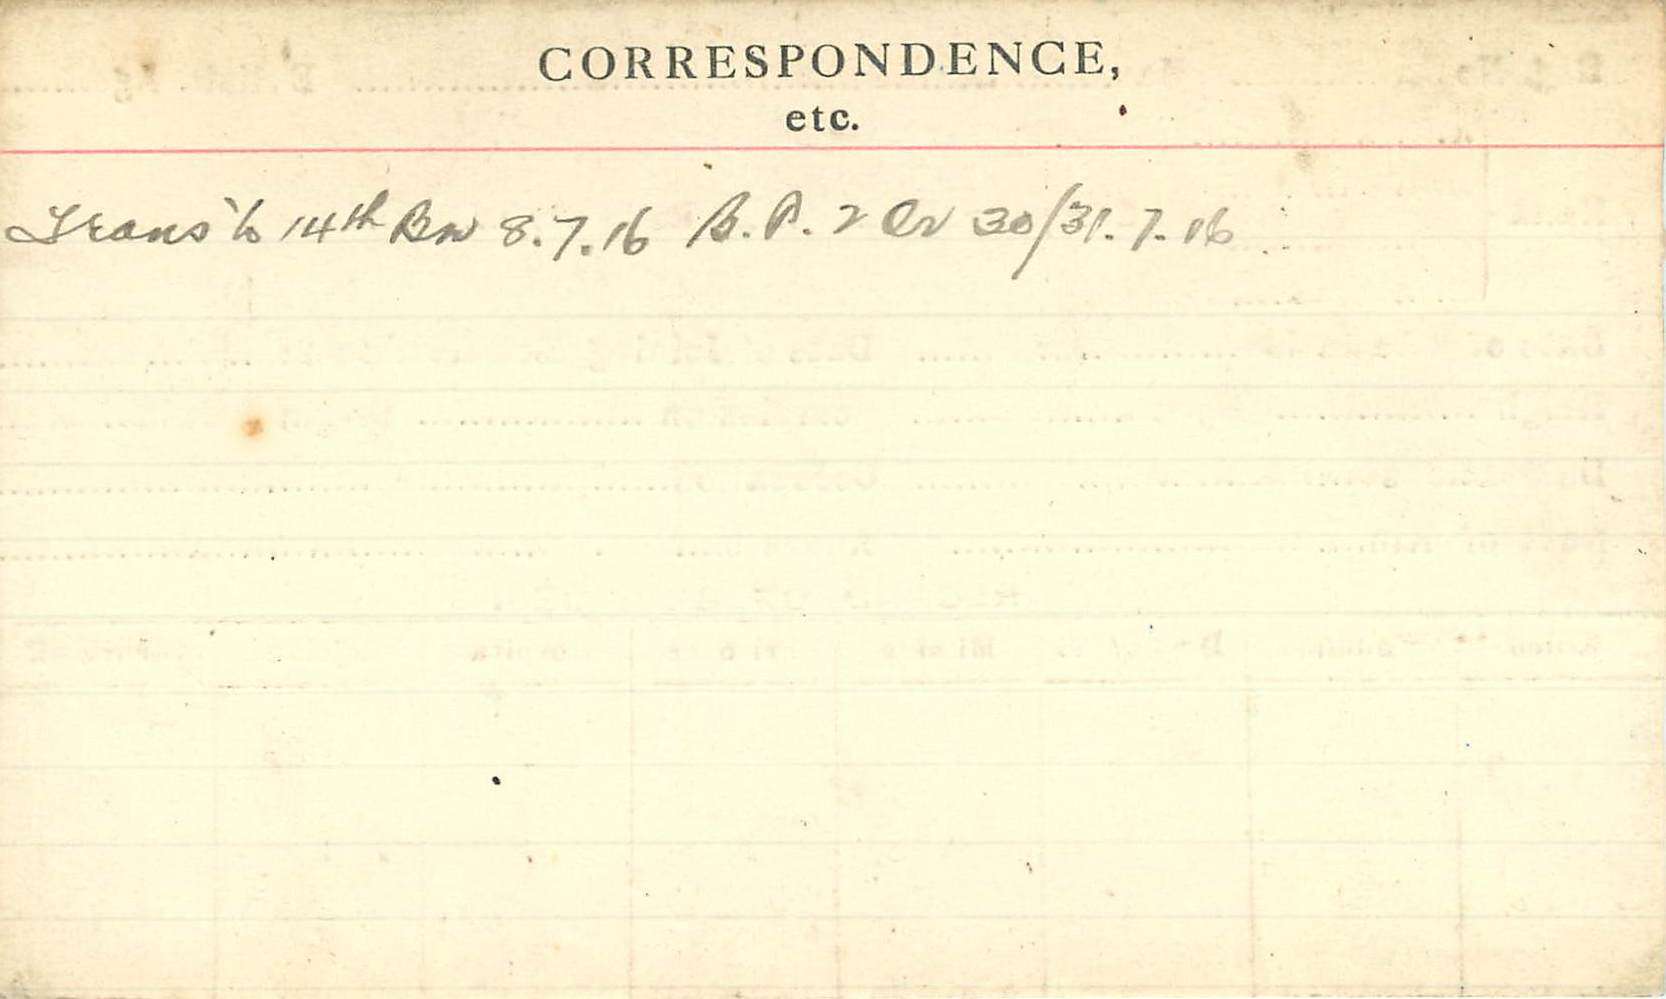 CORRESPONDENCE,
etc.
Trans to 14th Bn 8.7.16 B.P. 2 Or 30/31.7.16